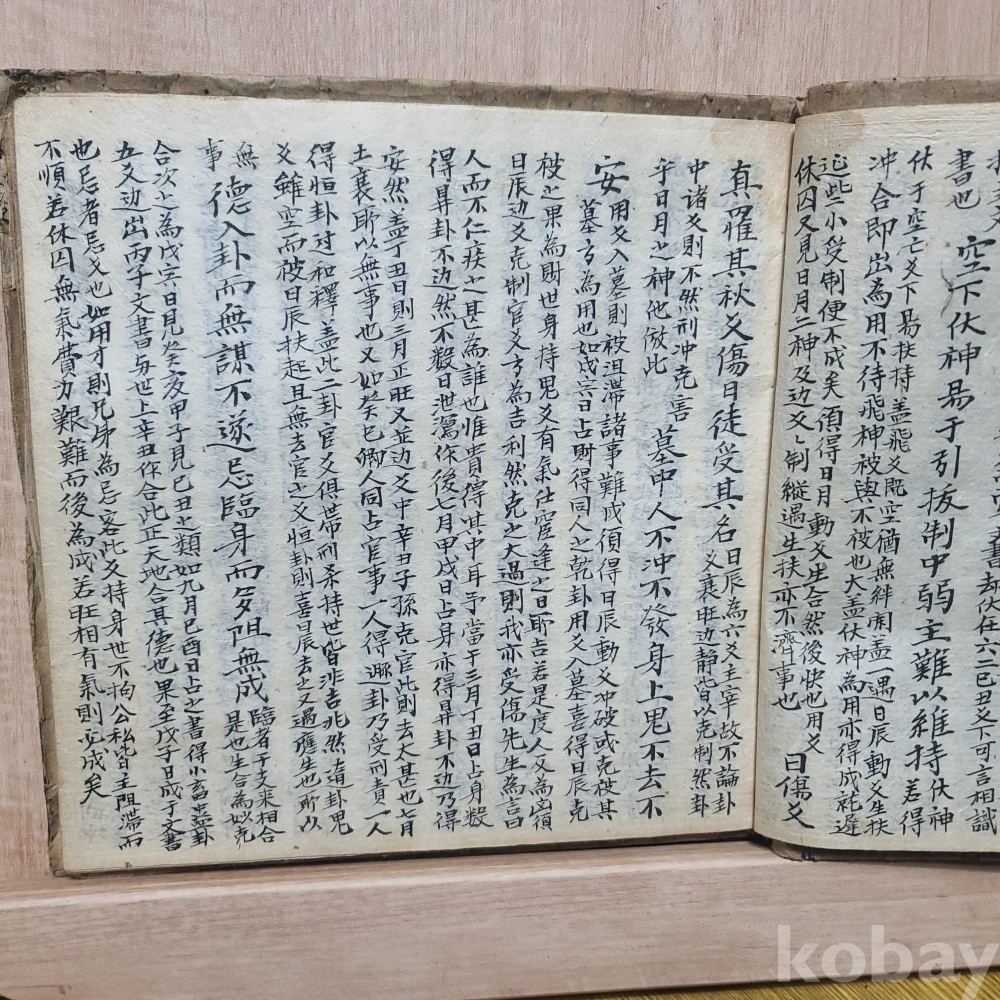 書却伏仕六二己丑爻下可言相識
書也 空下伏神易于引拔制中弱主難以維持伏神
伏于空亡爻下易扶持盖飛爻既空猶無絆闲盖一遇日辰動爻生扶若得
冲合即出為用不待飛神被與不被也大盖伏神為用亦得成就遅
些小受制便不成矣須得日月動爻生合然後快也用爻
休囚又見日月二神及边爻々制縱遇生扶亦不濟事也 日傷爻
真羅其秋爻傷日徒受其名日辰為六爻主宰故不論卦
爻衰旺边静皆以克制然卦
中諸爻則不然刑冲克害
乎日月之神他倣此 墓中人不冲不發身上鬼不去不
安用爻入墓則被沮滯諸事難成須得日辰動爻冲破或克被其
墓方為用也如戊寅日占財得同人之乾卦用爻入墓喜得日辰克
被之果為財世身持鬼爻有氣
日辰边爻克制官爻方為吉利然克之大過則我亦受傷先生為言曰
人而不仁疾之甚為誰也惟貴得其中耳予當于三月丁丑日占身數
得昇卦不边然不數日泄瀉作後七月甲戌日占身亦得昇卦不边乃得
安然盖丁丑日則三月正旺又並边爻中辛丑子孫克官此則去太甚也七月
土衰所以無事也又如癸巳卿人同占官事一人得蹶卦乃受刑責一人
得恒卦过和釋盖此二卦官爻俱帶刑杀持世皆非吉兆然
爻雖空而被日辰扶起且無去官之爻恒卦則喜日辰去之又遇應生也所以
無
事 德入卦而無謀不遂忌臨身而多阻無成臨者子支来相合
是也生合為妙克
合次之為戊寅日見癸亥甲子見己丑之類如九月己酉日占之書得小畜之盖卦
五爻边出丙子文書与世上辛丑作合此正天地合其德也果至戊子日成于文書
也忌者忌爻也如用才則兄弟為忌客此爻持身世不拘公私皆主阻滯而
不順若休囚無氣費力艱難而後為成若旺相有氣則必成矣